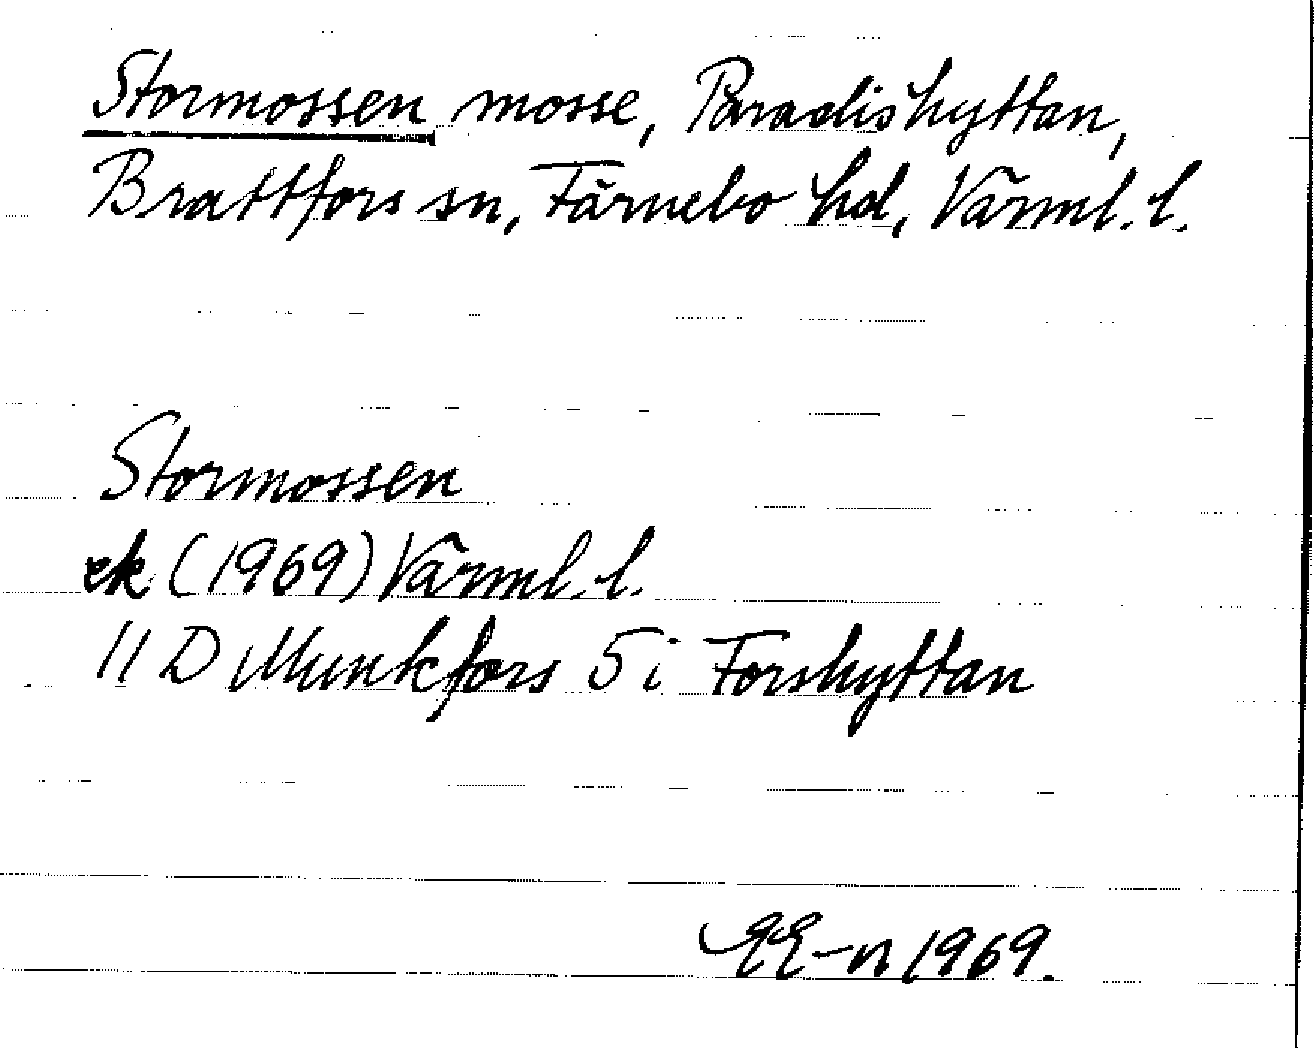 Stormossen mosse, Paradishyttan,
Brattfors sn, Färnebo hd, Värml. l.
Stormossen
ek (1969) Värml. l.
11 D Munkfors 5 i Forshyttan
EE-n 1969.